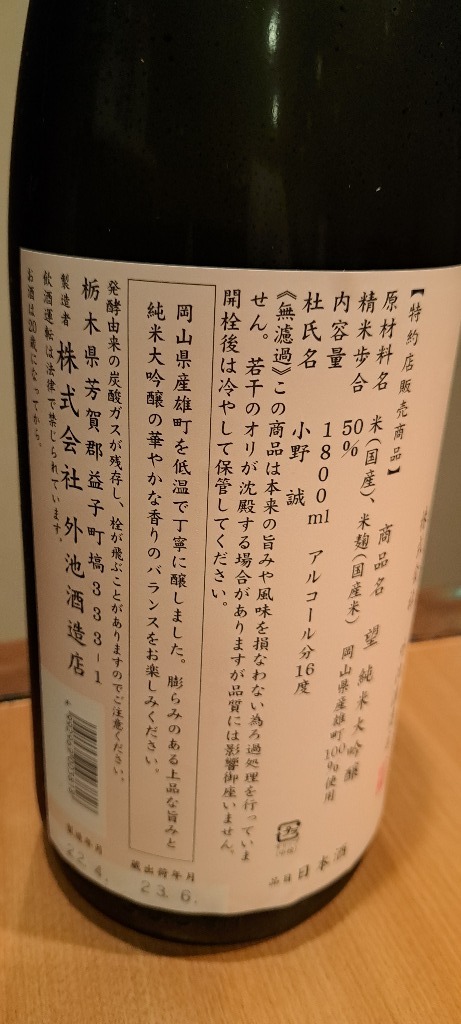 【特約店販売商品】
商品名 望 純米大吟醸
原材料名 米(国産)、米麹(国産米)
岡山県産雄町100%使用
精米歩合 50%
内容量 1800ml アルコール分16度
杜氏名 小野 誠
《無濾過》この商品は本来の旨みや風味を損なわない為ろ過処理を行っていま
せん。若干のオリが沈殿する場合がありますが品質には影響御座いません。
開栓後は冷やして保管してください。
岡山県産雄町を低温で丁寧に醸しました。膨らみのある上品な旨みと
純米大吟醸の華やかな香りのバランスをお楽しみください。
発酵由来の炭酸ガスが残存し、栓が飛ぶことがありますのでご注意ください。
栃木県芳賀郡益子町塙333-1
製造者 株式会社 外池酒造店
飲酒運転は法律で禁じられています。
お酒は20歳になってから。
品目 日本酒
蔵出荷年月 23.6.
製造年月 22.4.